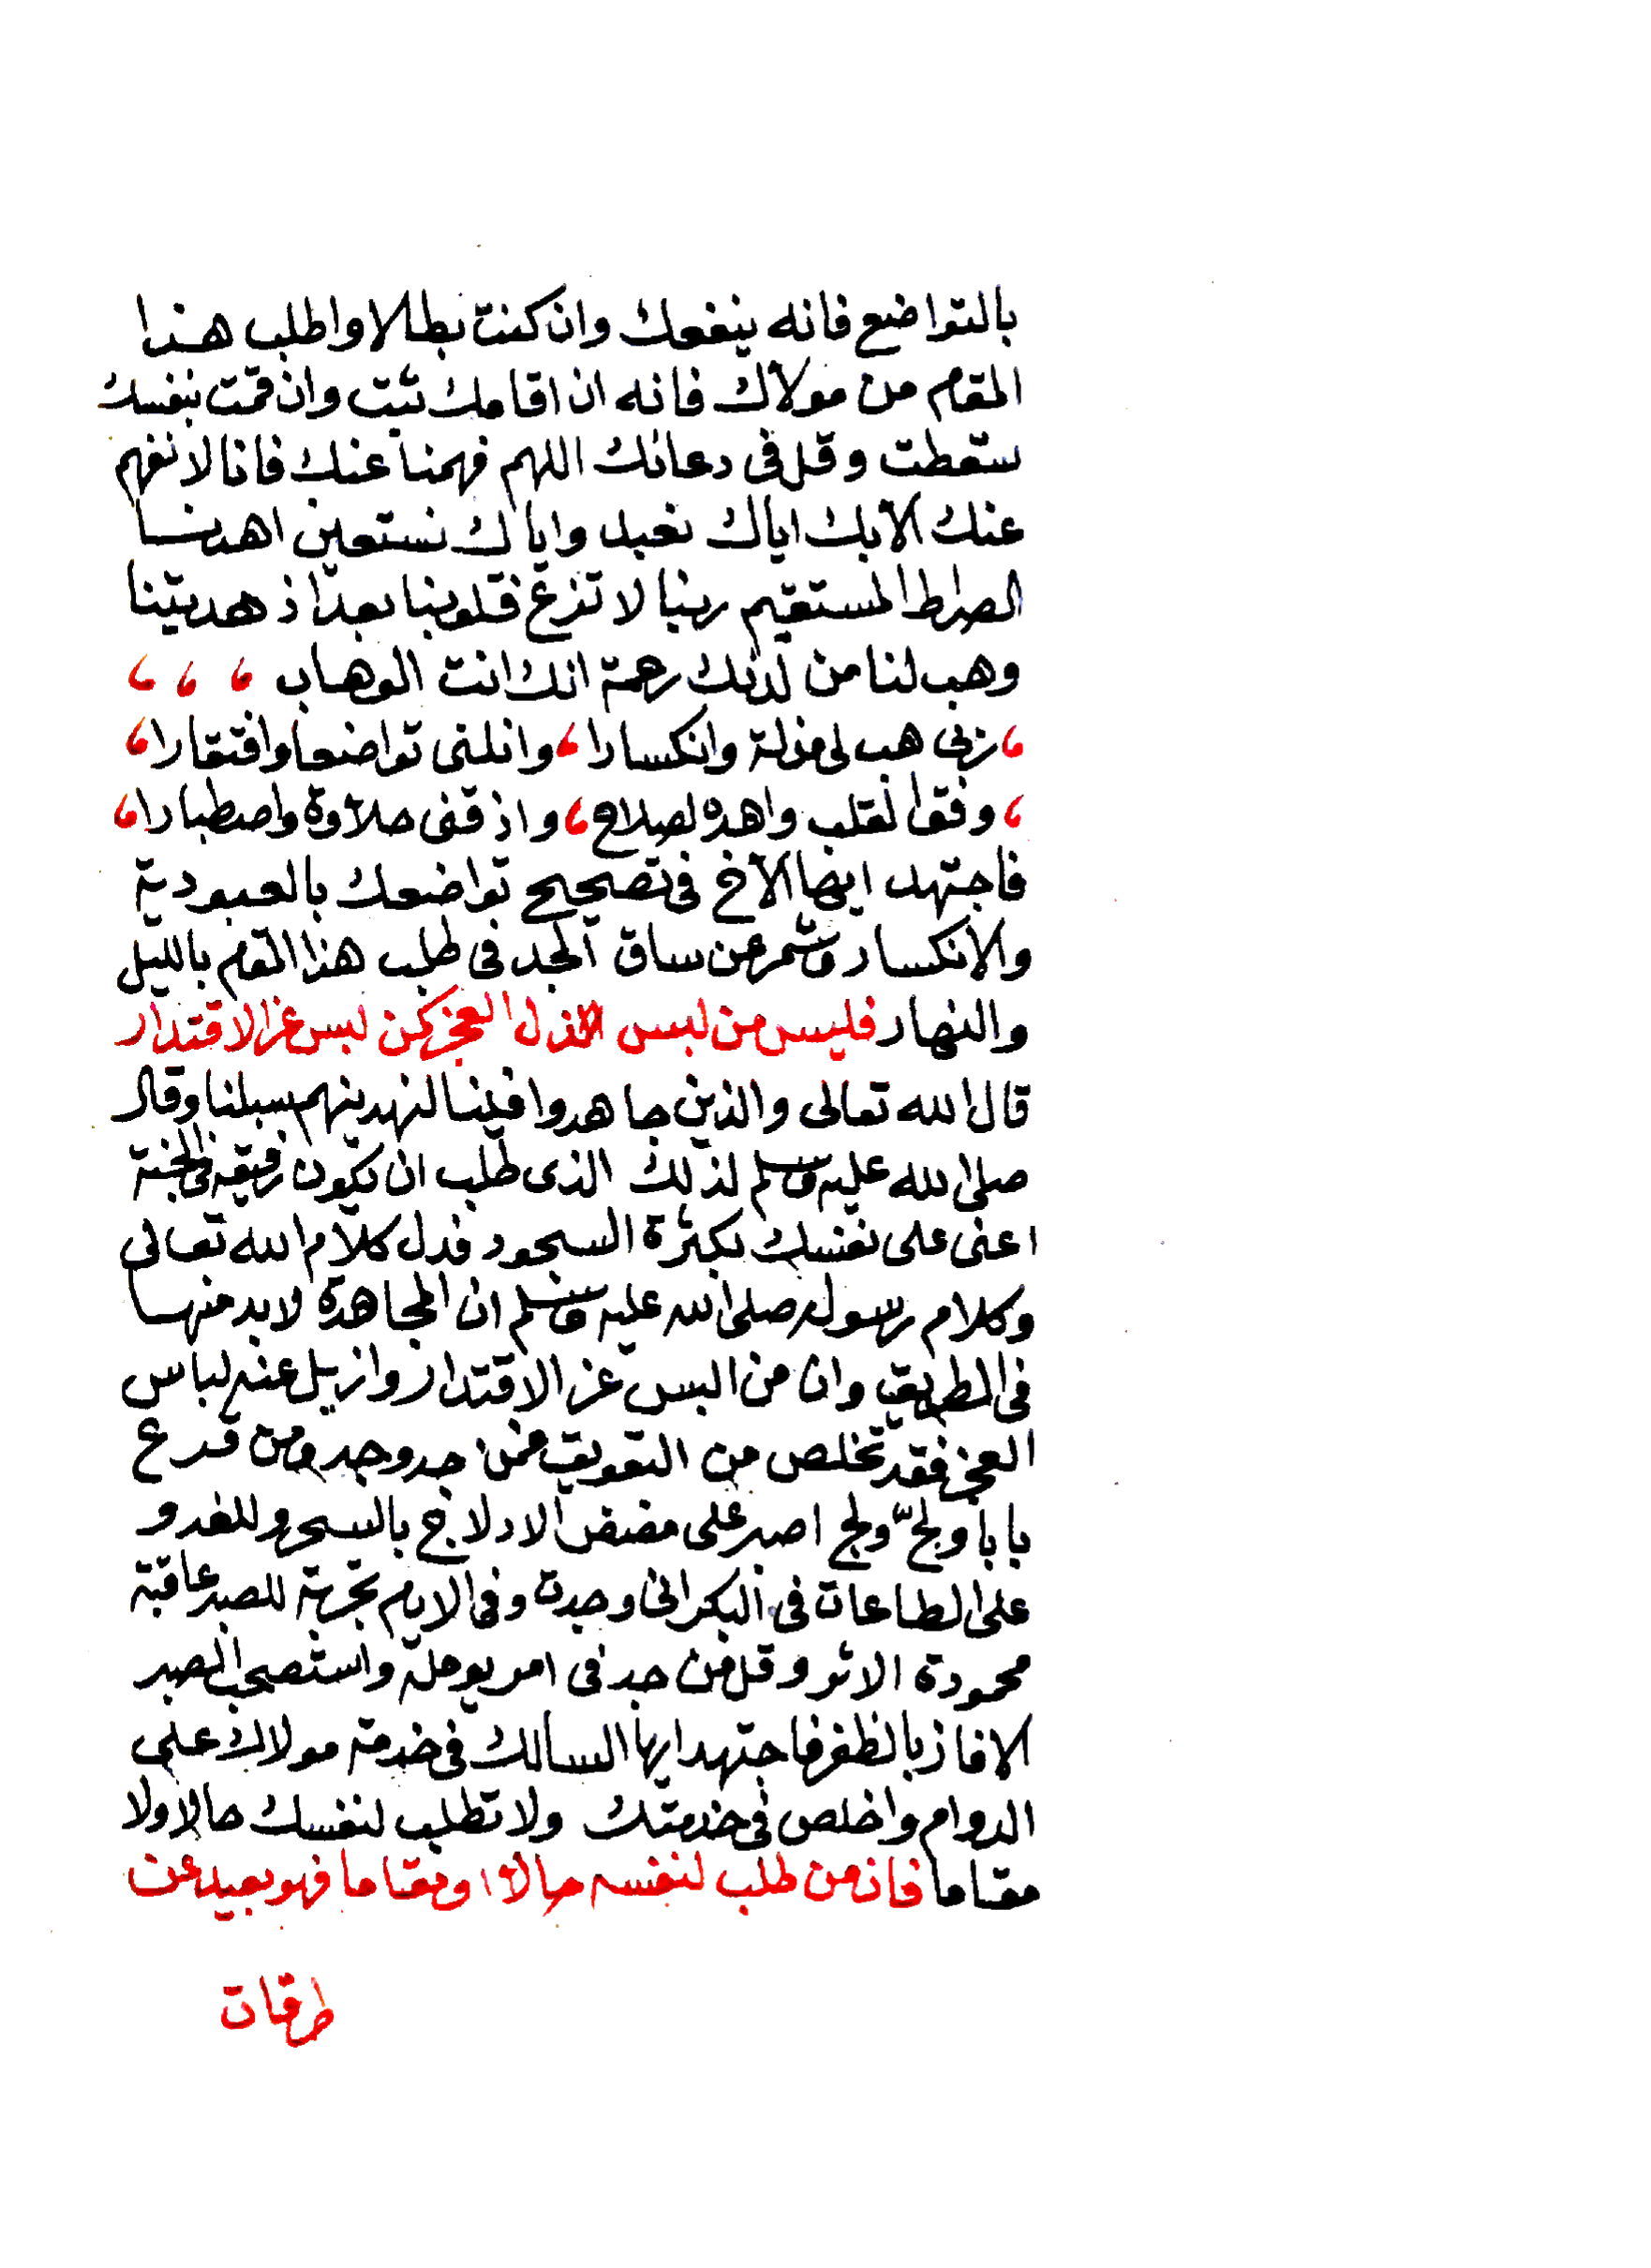 بالتواضع فانه ينفعك وان كنت بطالا واطلب هذا
المقام من مولاك فانه ان اقامك ثبت وان قمت بنفسك
سقطت وقل فى دعائك اللهم فهمنا عنك فانا لا نفهم
عنك الا بك اياك نعبد واياك نستعين اهدنا
الصراط المستقيم ربنا لا تزغ قلوبنا بعد اذ هديتنا
وهب لنا من لدنك رحمة انك انت الوهاب ، ، ،
، ربى هب لى مذلة وانكسارا ، وانلنى تواضعا وافتقارا ،
، وفق القلب واهده لصلاح ، واذقنى حلاوة واصطبارا ،
فاجتهد ايها الاخ فى تصحيح تواضعك بالعبودية
والانكسار وشمر عن ساق الجد فى طلب هذا المقام بالليل
والنهار فليس من لبس ذل العجز كمن لبس عز الاقتدار
قال الله تعالى والذين جاهدوا فينا لنهدينهم سبلنا وقال
صلى الله عليه وسلم لذلك الذى طلب ان يكون رفيقه فى الجنة
اعنى على نفسك بكثرة السجود فدل كلام الله تعالى
وكلام رسوله صلى الله عليه وسلم ان المجاهدة لا بد منها
فى الطريق وان من البس عز الاقتدار وازيل عنه لباس
العجز فقد تخلص من التعويق فمن جد وجد ومن قرع
بابا ولجّ ولج اصبر على مضض الادلاج بالسحر وللغدو
على الطاعات فى البكر انى وجدت وفى الايام تجربة للصبر عاقبة
محمودة الاثر وقل من جد فى امر يومله واستصحب الصبر
الا فاز بالظفر فاجتهد ايها السالك فى خدمة مولاك على
الدوام واخلص فى خدمتك ولا تطلب لنفسك حالا ولا
مقاما فان من طلب لنفسه حالا او مقاما فهو بعيد عن
طرقات